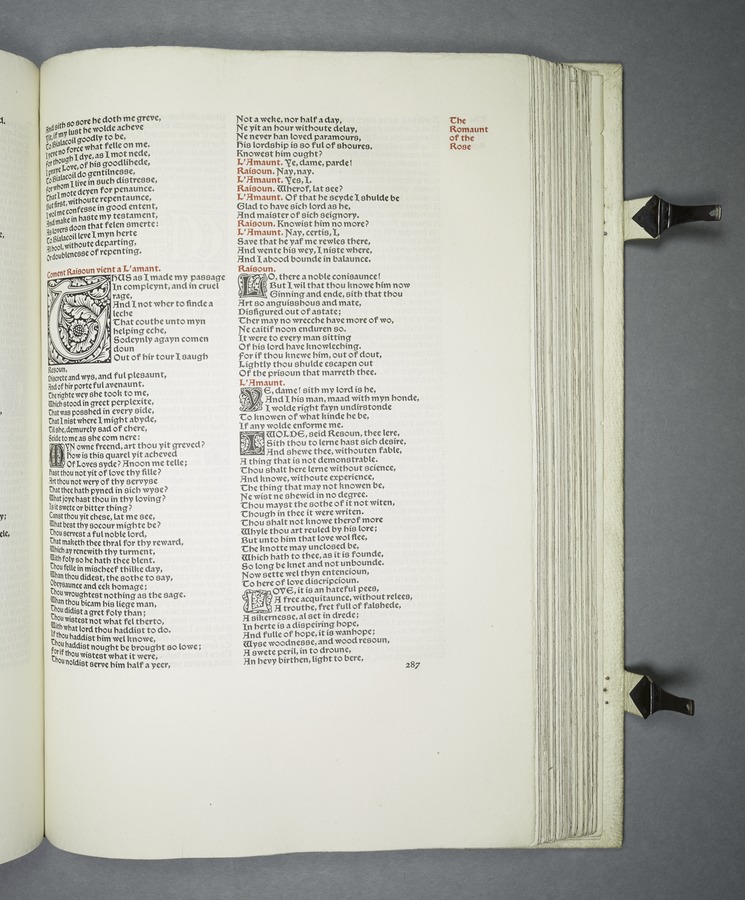 And sith so sore he doth me greve,
Yit, if my lust he wolde acheve
To Bialacoil goodly to be,
I yeve no force what felle on me.
For though I dye, as I mot nede,
I praye Love, of his goodlihede,
To Bialacoil do gentilnesse,
For whom I live in such distresse,
That I mote deyen for penaunce.
But first, withoute repentaunce,
I wol me confesse in good entent,
And make in haste my testament,
As lovers doon that felen smerte:
To Bialacoil leve I myn herte
Al hool, withoute departing,
Or doublenesse of repenting.
Coment Raisoun vient a L'amant.
THUS as I made my passage
In compleynt, and in cruel
rage,
And I not wher to finde a
leche
That couthe unto myn
helping eche,
Sodeynly agayn comen
doun
Out of hir tour I saugh
Resoun,
Discrete and wys, and ful plesaunt,
And of hir porte ful avenaunt.
The righte wey she took to me,
Which stood in greet perplexite,
That was posshed in every side,
That I nist where I might abyde,
Til she, demurely sad of chere,
Seide to me as she com nere:
MYN owne freend, art thou yit greved?
How is this quarel yit acheved
Of Loves syde? Anoon me telle;
Hast thou not yit of love thy fille?
Art thou not wery of thy servyse
That thee hath pyned in sich wyse?
What joye hast thou in thy loving?
Is it swete or bitter thing?
Canst thou yit chese, lat me see,
What best thy socour mighte be?
Thou servest a ful noble lord,
That maketh thee thral for thy reward,
Which ay renewith thy turment,
With foly so he hath thee blent.
Thou felle in mischeef thilke day,
Whan thou didest, the sothe to say,
Obeysaunce and eek homage;
Thou wroughtest nothing as the sage.
Whan thou bicam his liege man,
Thou didist a gret foly than;
Thou wistest not what fel therto,
With what lord thou haddist to do.
If thou haddist him wel knowe,
Thou haddist nought be brought so lowe;
For if thou wistest what it were,
Thou noldist serve him half a yeer,
Not a weke, nor half a day,
Ne yit an hour withoute delay,
Ne never han loved paramours,
His lordship is so ful of shoures.
Knowest him ought?
L'Amaunt. Ye, dame, parde!
Raisoun. Nay, nay.
L'Amaunt. Yes, I.
Raisoun. Wherof, lat see?
L'Amaunt. Of that he seyde I shulde be
Glad to have sich lord as he,
And maister of sich seignory.
Raisoun. Knowist him no more?
L'Amaunt. Nay, certis, I,
Save that he yaf me rewles there,
And wente his wey, I niste where,
And I abood bounde in balaunce.
Raisoun.
LO, there a noble conisaunce!
But I wil that thou knowe him now
Ginning and ende, sith that thou
Art so anguisshous and mate,
Disfigured out of astate;
Ther may no wrecche have more of wo,
Ne caitif noon enduren so.
It were to every man sitting
Of his lord have knowleching.
For if thou knewe him, out of dout,
Lightly thou shulde escapen out
Of the prisoun that marreth thee.
L'Amaunt.
YE, dame! sith my lord is he,
And I his man, maad with myn honde,
I wolde right fayn undirstonde
To knowen of what kinde he be,
If any wolde enforme me.
I WOLDE, seid Resoun, thee lere,
Sith thou to lerne hast sich desire,
And shewe thee, withouten fable,
A thing that is not demonstrable.
Thou shalt here lerne without science,
And knowe, withoute experience,
The thing that may not knowen be,
Ne wist ne shewid in no degree.
Thou mayst the sothe of it not witen,
Though in thee it were writen.
Thou shalt not knowe therof more
Whyle thou art reuled by his lore;
But unto him that love wol flee,
The knotte may unclosed be,
Which hath to thee, as it is founde,
So long be knet and not unbounde.
Now sette wel thyn entencioun,
To here of love discripcioun.
LOVE, it is an hateful pees,
A free acquitaunce, without relees,
A trouthe, fret full of falshede,
A sikernesse, al set in drede;
In herte is a dispeiring hope,
And fulle of hope, it is wanhope;
Wyse woodnesse, and wood resoun,
A swete peril, in to droune,
An hevy birthen, light to bere,
287
The
Romaunt
of the
Rose